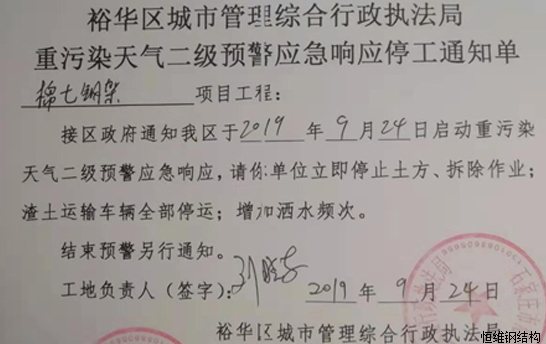 裕华区城市管理综合行政执法局
重污染天气二级预警应急响应停工通知单
棉七钢架 项目工程：
接区政府通知我区于2019年9月24日启动重污染
天气二级预警应急响应，请你单位立即停止土方、拆除作业；
渣土运输车辆全部停运；增加洒水频次。
结束预警另行通知。
工地负责人（签字）：
2019年9月24日
裕华区城市管理综合行政执法局
恒维钢结构